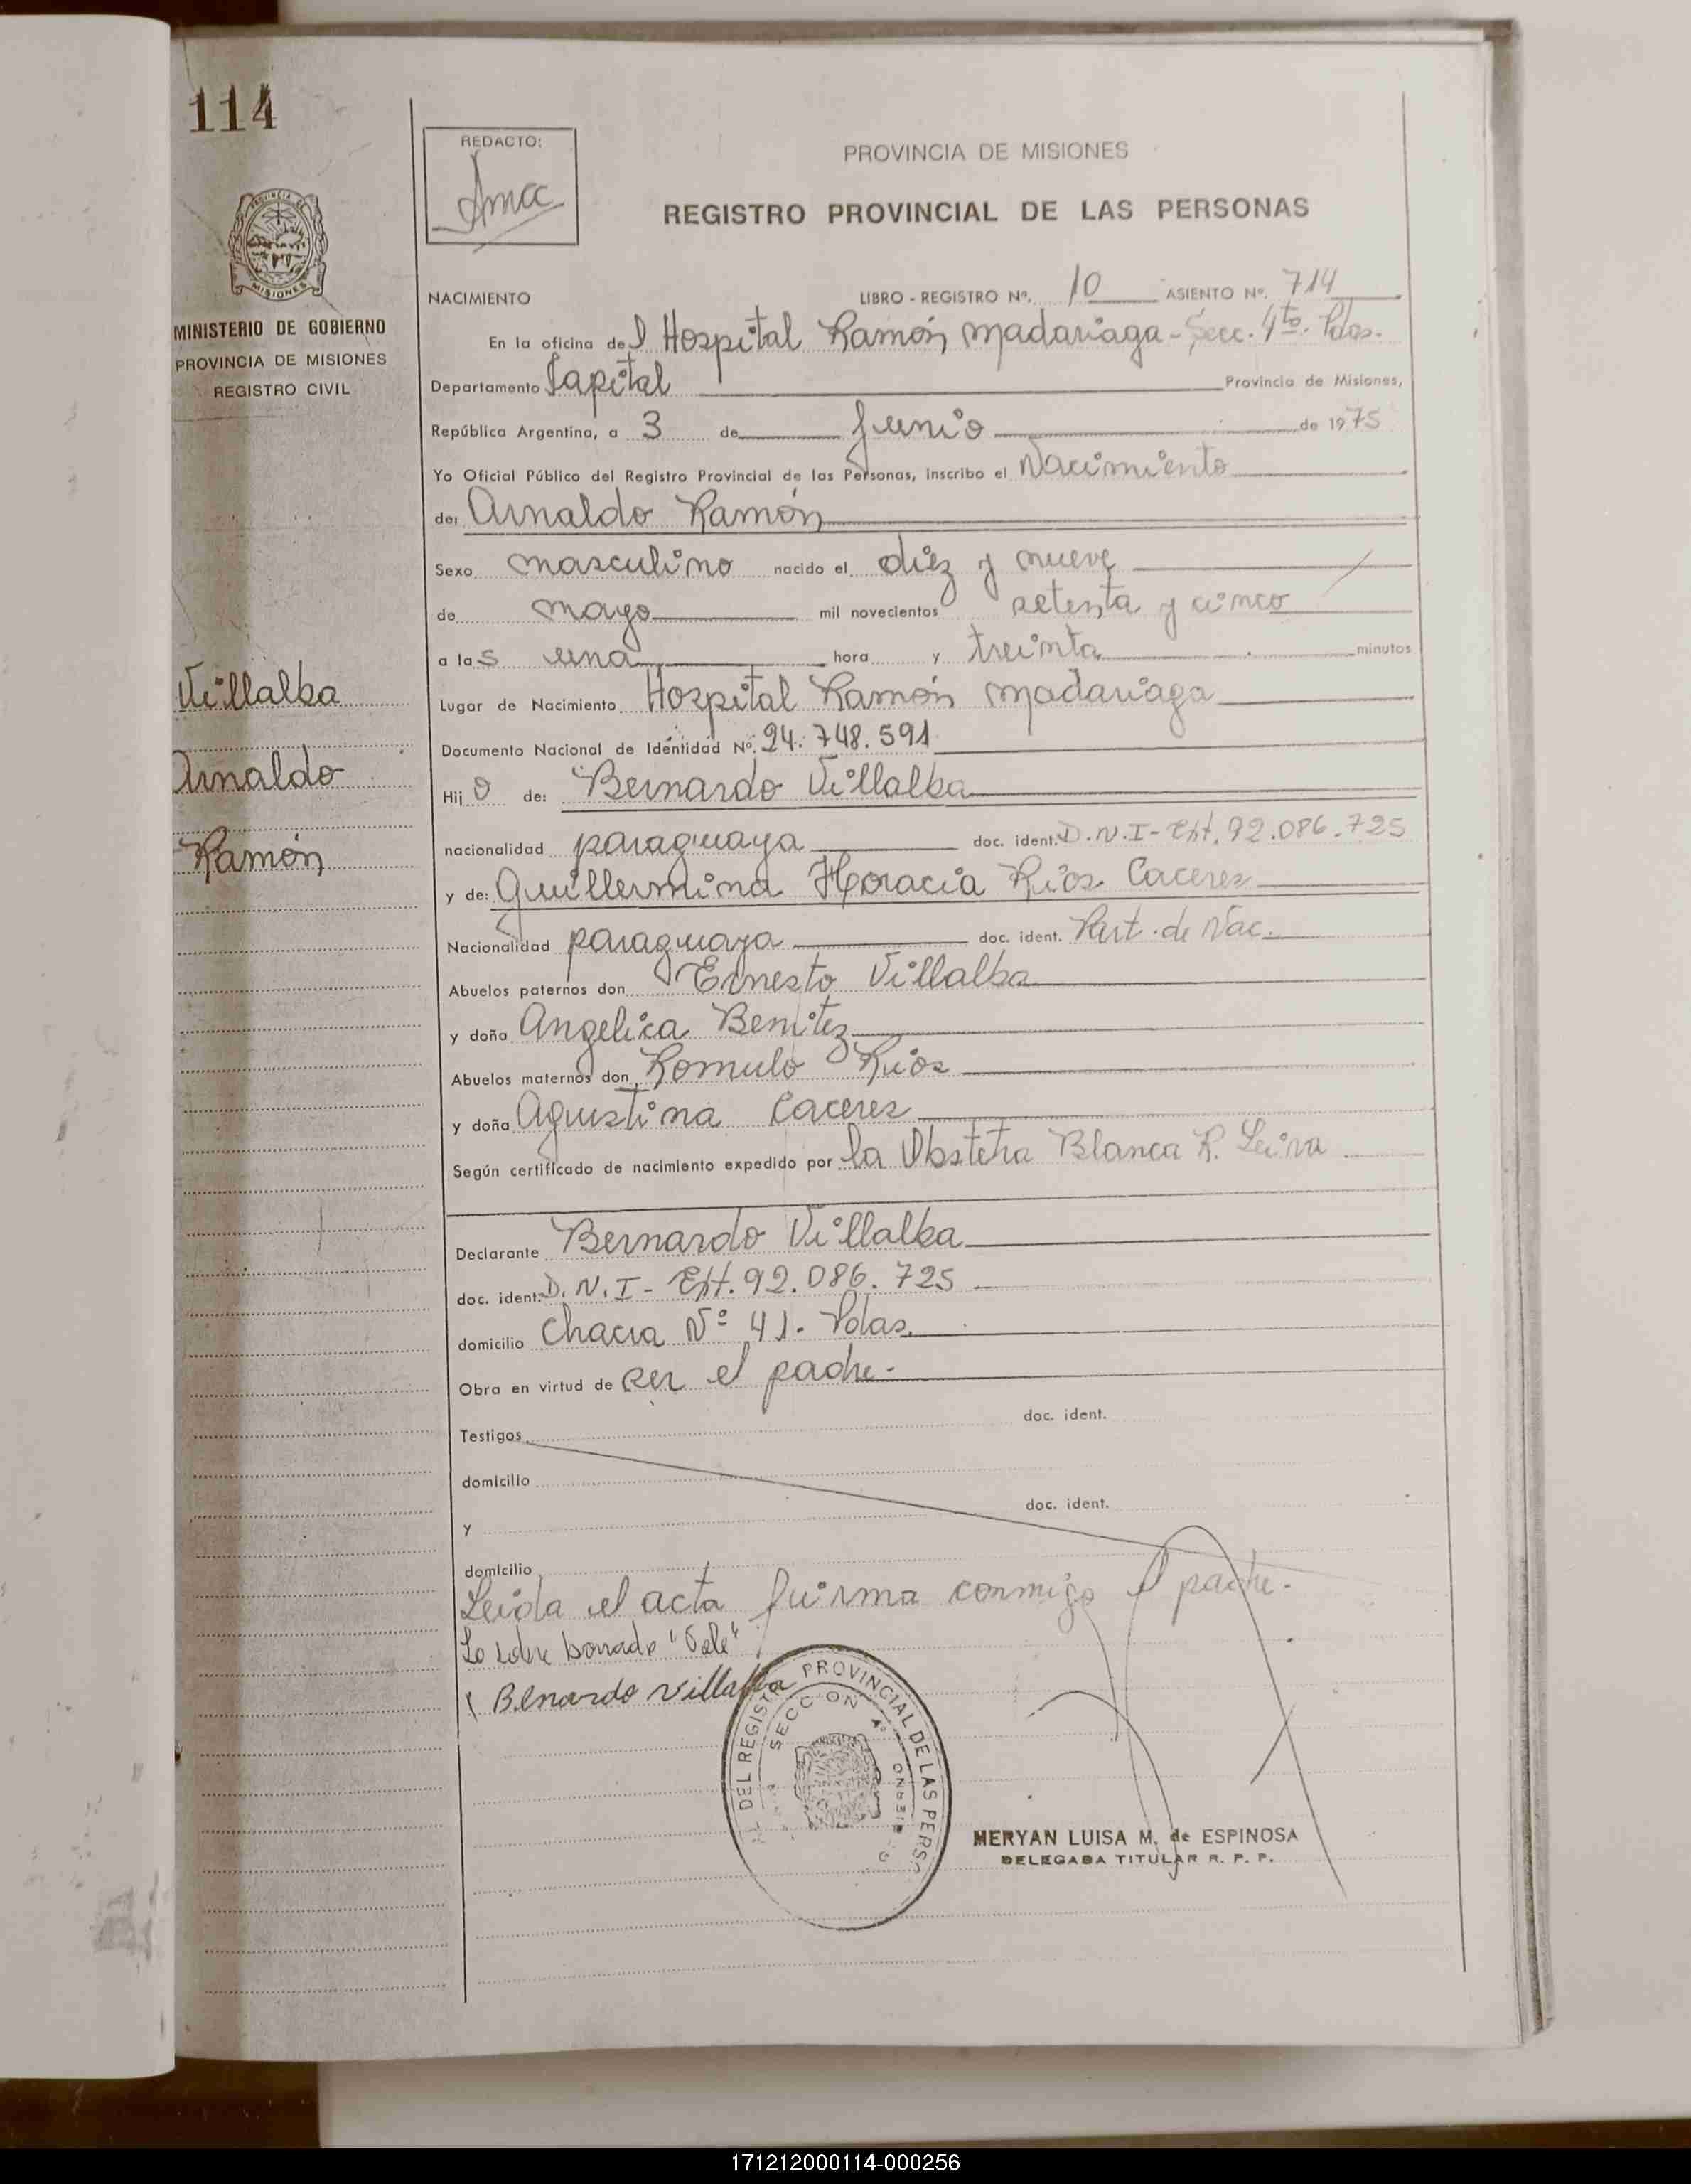 114
REDACTO:
PROVINCIA DE MISIONES
REGISTRO PROVINCIAL DE LAS PERSONAS
MISIONES
MINISTERIO DE GOBIERNO
PROVINCIA DE MISIONES
REGISTRO CIVIL
NACIMIENTO LIBRO - REGISTRO Nº. 10 ASIENTO Nº. 714
En la oficina del Hospital Ramón Madariaga - Secc. 4to. Pdas.
Departamento Capital Provincia de Misiones,
República Argentina, a 3 de Junio de 1975
Yo Oficial Público del Registro Provincial de las Personas, inscribo el Nacimiento
de: Arnaldo Ramón
Sexo masculino nacido el diez y nueve
de mayo mil novecientos setenta y cinco
a las una hora y treinta minutos
Villalba
Lugar de Nacimiento Hospital Ramón Madariaga
Documento Nacional de Identidad Nº. 24.748.591
Arnaldo
Hijo de: Bernardo Villalba
Ramón
nacionalidad paraguaya doc. ident. D.N.I - Ext. 92.086.725
y de: Guillermina Horacia Rios Caceres
Nacionalidad paraguaya doc. ident. Part. de Nac.
Abuelos paternos don Ernesto Villalba
y doña Angelica Benitez
Abuelos maternos don Romulo Rios
y doña Agustina Caceres
Según certificado de nacimiento expedido por la Obstetra Blanca R. Leiva
Declarante Bernardo Villalba
doc. ident. D.N.I - Ext. 92.086.725
domicilio Chacra Nº 41. Pdas.
Obra en virtud de ser el padre.-
doc. ident.
Testigos
domicilio
doc. ident.
y
domicilio
Leida el acta firma conmigo el padre.-
Lo sobre borrado "Vale"
Bernardo Villalba
DEL REGISTRO PROVINCIAL DE LAS PERS
SECCION 4º
MERYAN LUISA M. de ESPINOSA
DELEGADA TITULAR R. P. P.
171212000114-000256